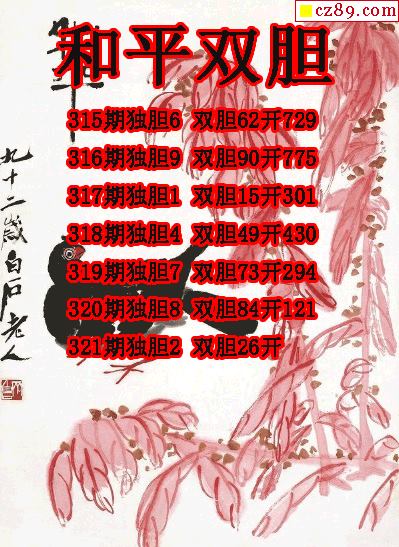 cz89.com
和平双胆
315期独胆6 双胆62开729
316期独胆9 双胆90开775
317期独胆1 双胆15开301
318期独胆4 双胆49开430
319期独胆7 双胆73开294
320期独胆8 双胆84开121
321期独胆2 双胆26开
九十二岁白石老人